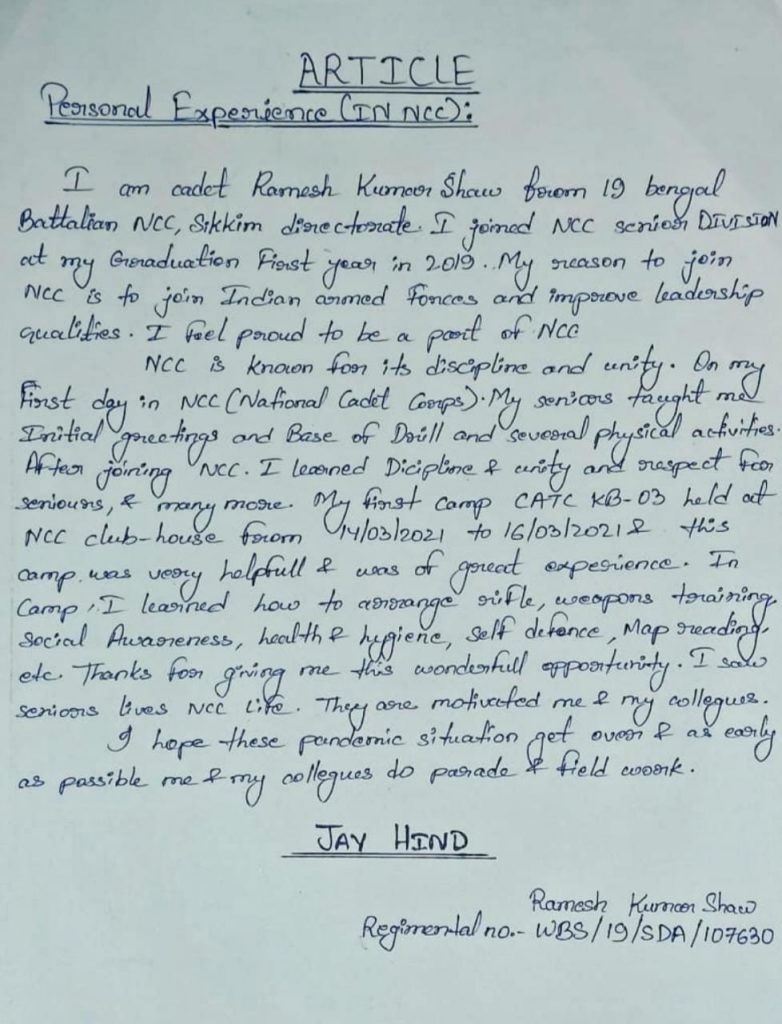 ARTICLE
Personal Experience (IN NCC):
I am cadet Ramesh Kumar Shaw from 19 bengal
Battalian NCC, Sikkim directorate. I joined NCC senior DIVISION
at my Graduation First year in 2019. My reason to join
NCC is to join Indian armed Forces and improve leadership
qualities. I feel proud to be a part of NCC
NCC is known for its discipline and unity. On my
First day in NCC (National Cadet Corps). My seniors taught me
Initial greetings and Base of Drill and several physical activities.
After joining NCC. I learned Dicipline & unity and respect for
seniours, & many more. My first camp CATC KB-03 held at
NCC club-house from 14/03/2021 to 16/03/2021 & this
camp was very helpfull & was of great experience. In
Camp, I learned how to arrange rifle, weapons training,
Social Awareness, health & hygiene, self defence, Map reading,
etc. Thanks for giving me this wonderfull opportunity. I saw
seniors lives NCC Life. They are motivated me & my collegues.
I hope these pandemic situation get over & as early
as possible me & my collegues do parade & field work.
JAY HIND
Ramesh Kumar Shaw
Regimental no.- WBS/19/SDA/107630